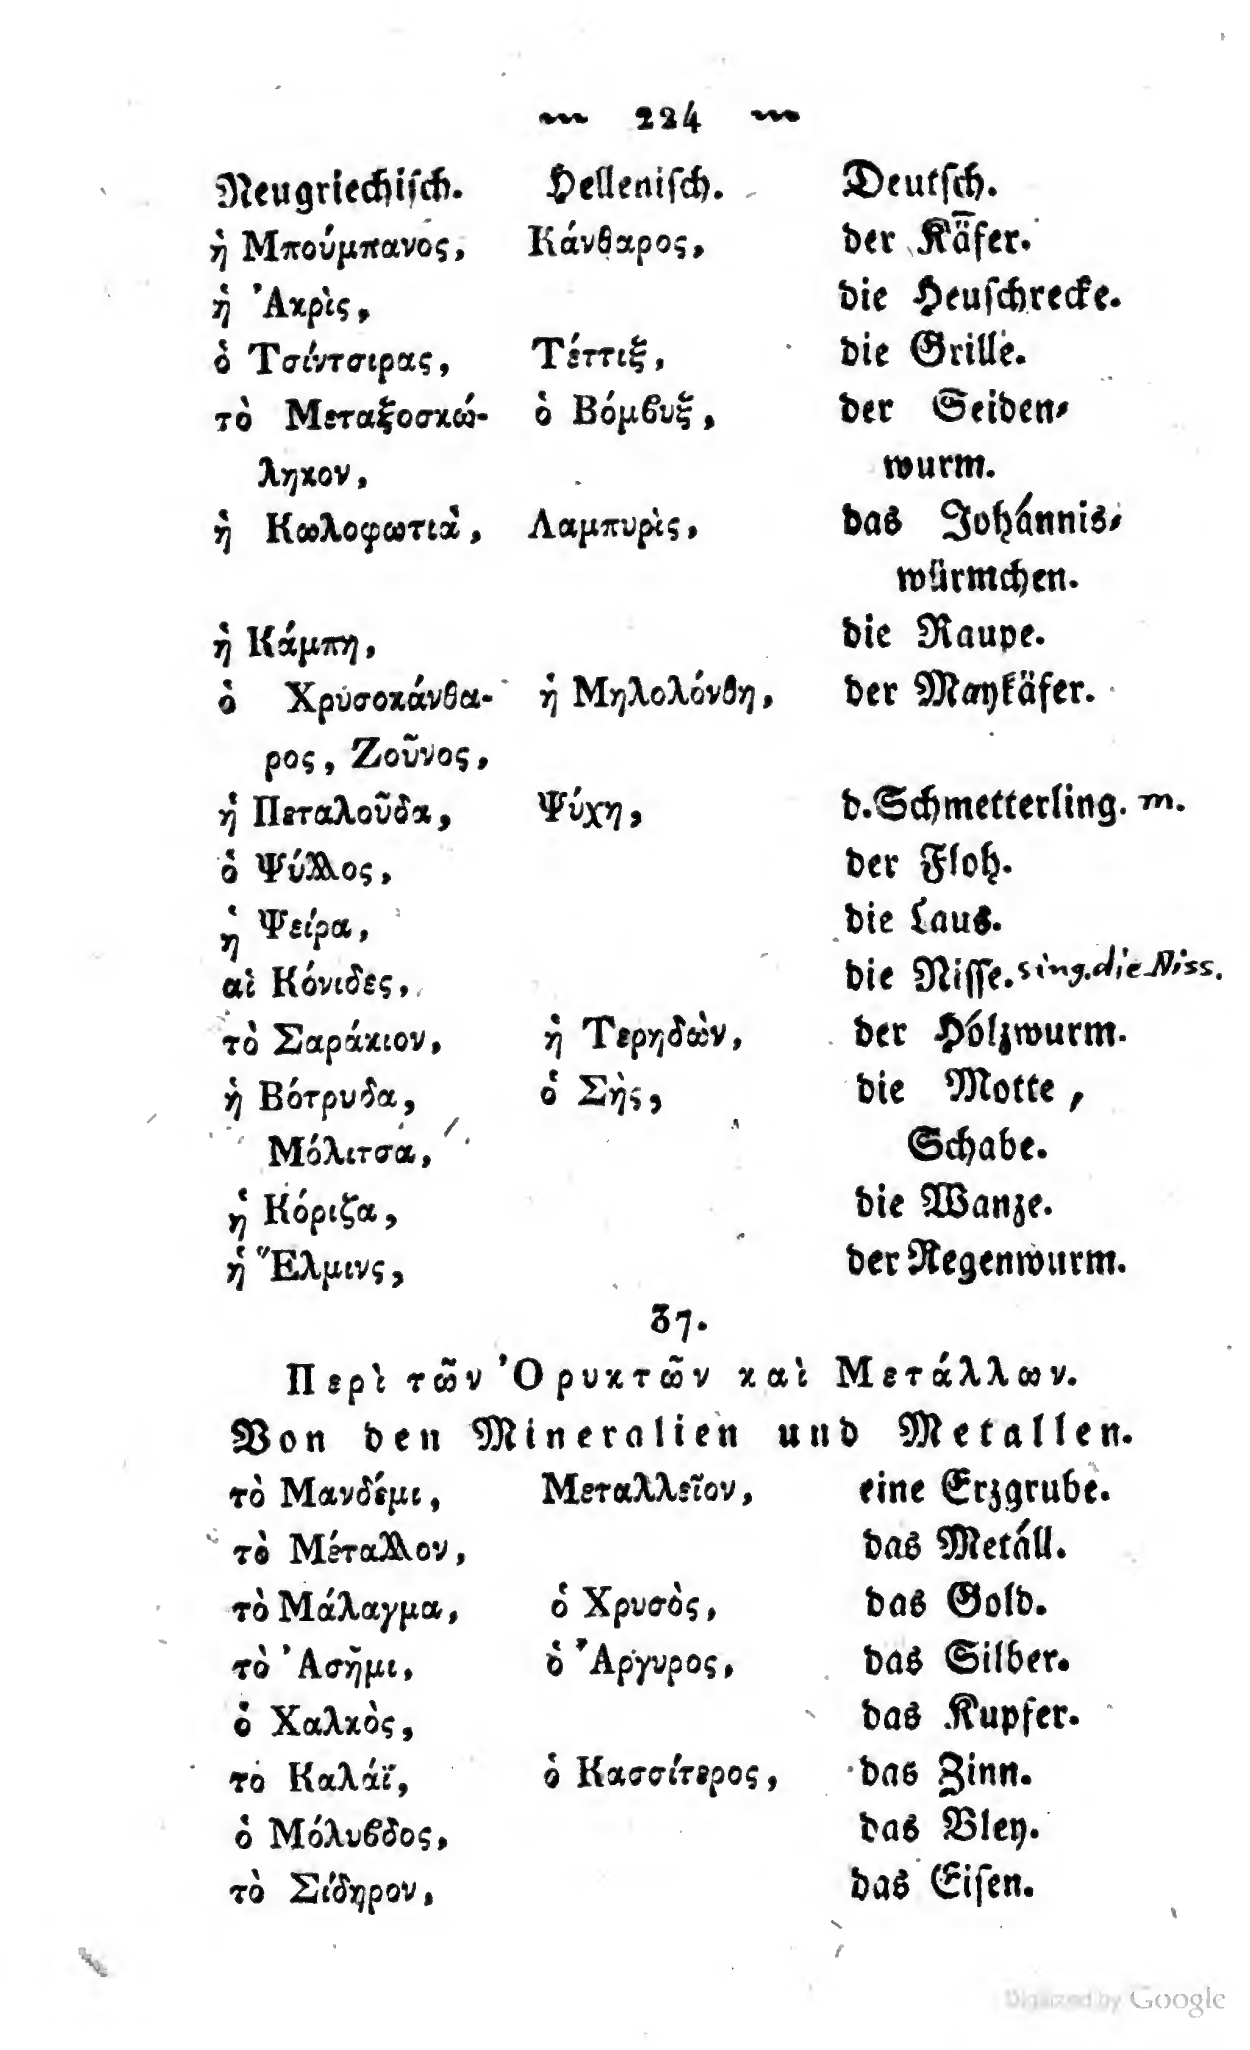 224
Neugriechisch. Hellenisch. Deutsch.
ἡ Μπούμπανος, Κάνθαρος, der Käfer.
ἡ Ἀκρὶς, die Heuschrecke.
ὁ Τσίντσιρας, Τέττιξ, die Grille.
τὸ Μεταξοσκώ- ὁ Βόμβυξ, der Seiden-
ληκον, wurm.
ἡ Κωλοφωτιὰ, Λαμπυρὶς, das Johánnis-
würmchen.
ἡ Κάμπη, die Raupe.
ὁ Χρυσοκάνθα- ἡ Μηλολόνθη, der Maykäfer.
ρος, Ζοῦνος,
ἡ Πεταλοῦδα, Ψύχη, d. Schmetterling. m.
ὁ Ψύλλος, der Floh.
ἡ Ψείρα, die Laus.
αἱ Κόνιδες, die Nisse. sing. die Niss.
τὸ Σαράκιον, ἡ Τερηδὼν, der Hólzwurm.
ἡ Βότρυδα, ὁ Σὴς, die Motte,
Μόλιτσα, Schabe.
ἡ Κόριζα, die Wanze.
ἡ Ἕλμινς, der Regenwurm.
37.
Περὶ τῶν Ὀρυκτῶν καὶ Μετάλλων.
Von den Mineralien und Metallen.
τὸ Μανδέμι, Μεταλλεῖον, eine Erzgrube.
τὸ Μέταλλον, das Metáll.
τὸ Μάλαγμα, ὁ Χρυσὸς, das Gold.
τὸ Ἀσῆμι, ὁ Ἄργυρος, das Silber.
ὁ Χαλκὸς, das Kupfer.
τὸ Καλάϊ, ὁ Κασσίτερος, das Zinn.
ὁ Μόλυβδος, das Bley.
τὸ Σίδηρον, das Eisen.
Digitized by Google